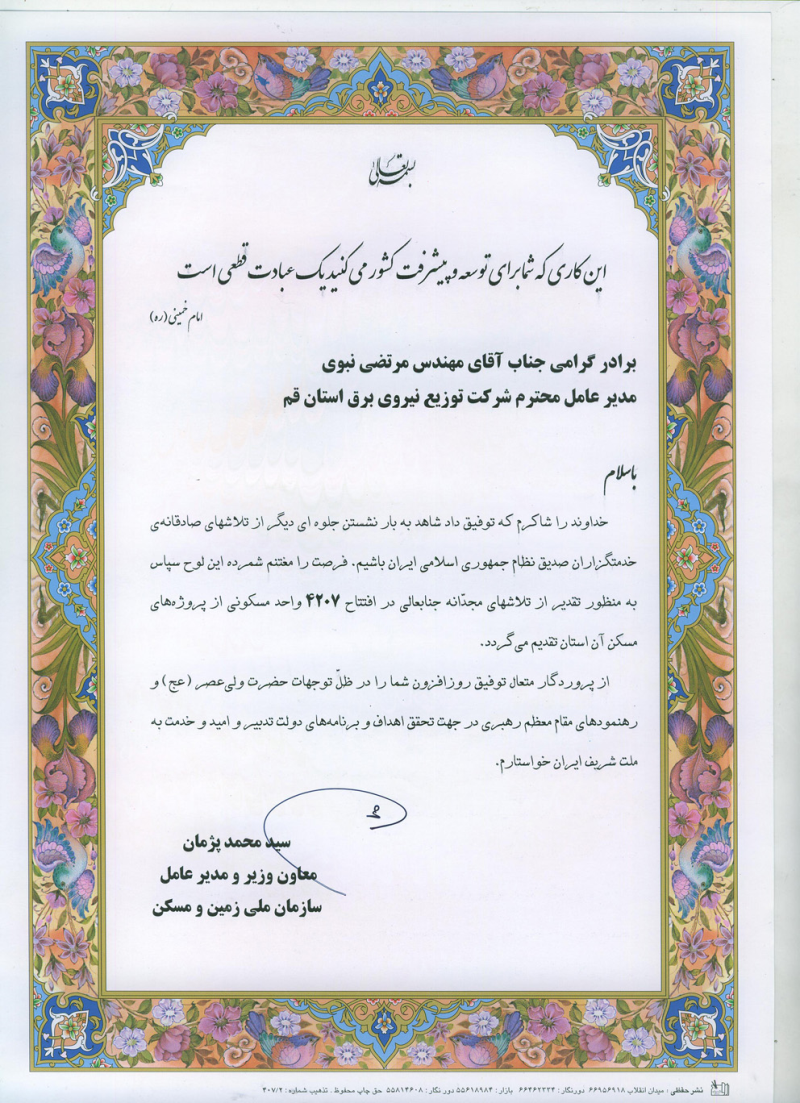 بسمه تعالی
این کاری که شما برای توسعه و پیشرفت کشور می کنید یک عبادت قطعی است
امام خمینی (ره)
برادر گرامی جناب آقای مهندس مرتضی نبوی
مدیر عامل محترم شرکت توزیع نیروی برق استان قم
باسلام
خداوند را شاکرم که توفیق داد شاهد به بار نشستن جلوه ای دیگر از تلاشهای صادقانه‌ی
خدمتگزاران صدیق نظام جمهوری اسلامی ایران باشیم. فرصت را مغتنم شمرده این لوح سپاس
به منظور تقدیر از تلاشهای مجدّانه جنابعالی در افتتاح ۴۲۰۷ واحد مسکونی از پروژه‌های
مسکن آن استان تقدیم می‌گردد.
از پروردگار متعال توفیق روزافزون شما را در ظلّ توجهات حضرت ولی‌عصر (عج) و
رهنمودهای مقام معظم رهبری در جهت تحقق اهداف و برنامه‌های دولت تدبیر و امید و خدمت به
ملت شریف ایران خواستارم.
سید محمد پژمان
معاون وزیر و مدیر عامل
سازمان ملی زمین و مسکن
نشر حقّقی : میدان انقلاب ۶۶۹۵۶۹۱۸ دورنگار : ۶۶۴۶۲۳۳۴ بازار : ۵۵۶۱۸۹۸۴ دورنگار : ۵۵۸۱۴۶۰۸ حق چاپ محفوظ . تذهیب شماره : ۴۰۷/۲